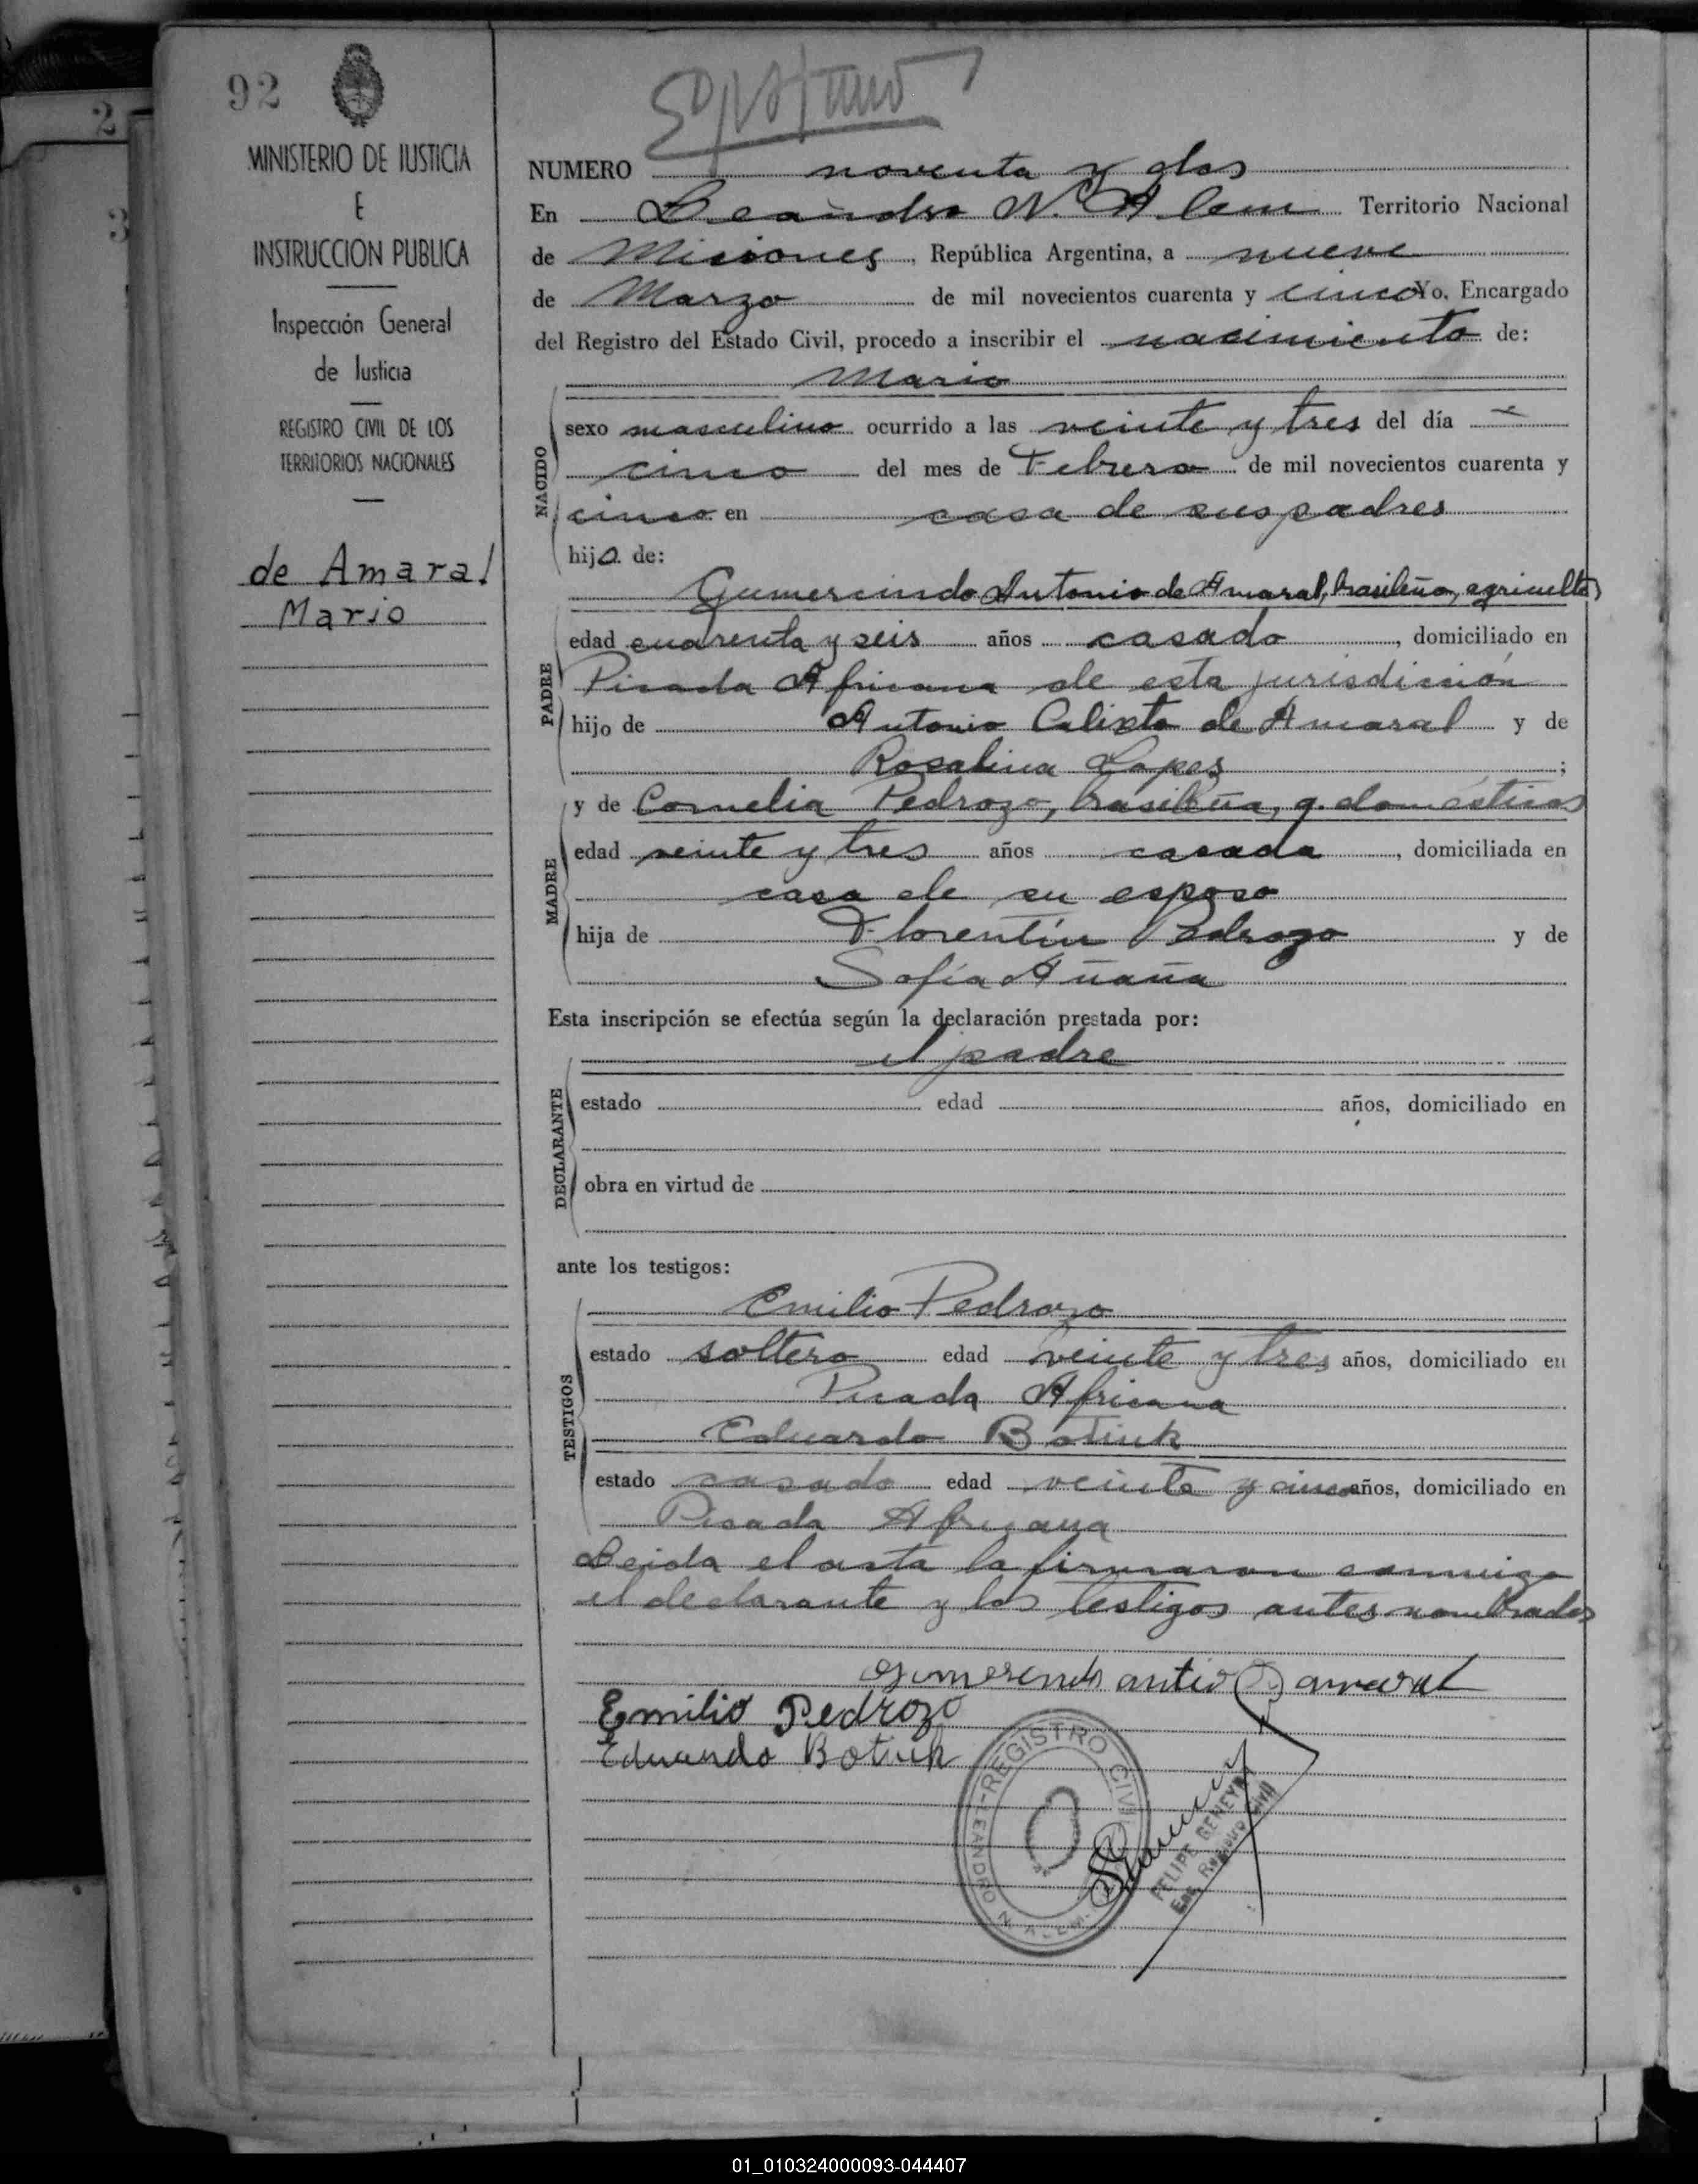 92
2
3
MINISTERIO DE JUSTICIA
E
INSTRUCCION PUBLICA
Inspección General
de Justicia
REGISTRO CIVIL DE LOS
TERRITORIOS NACIONALES
de Amaral
Mario
NUMERO noventa y dos
En Leandro N. Alem Territorio Nacional
de Misiones, República Argentina, a nueve
de Marzo de mil novecientos cuarenta y cinco Yo, Encargado
del Registro del Estado Civil, procedo a inscribir el nacimiento de:
Mario
NACIDO
sexo masculino ocurrido a las veinte y tres del día
cinco del mes de Febrero de mil novecientos cuarenta y
cinco en casa de sus padres
hijo de:
Gumercindo Antonio de Amaral, brasileño, agricultor
PADRE
edad cuarenta y seis años casado, domiciliado en
Picada Africana de esta jurisdicción
hijo de Antonio Calixto de Amaral y de
Rosalina Lopes;
MADRE
y de Cornelia Pedrozo, brasileña, q. domésticos
edad veinte y tres años casada, domiciliada en
casa de su esposo
hija de Florentín Pedrozo y de
Sofía Añaña
Esta inscripción se efectúa según la declaración prestada por:
el padre
DECLARANTE
estado edad años, domiciliado en
obra en virtud de
ante los testigos:
TESTIGOS
Emilio Pedrozo
estado soltero edad veinte y tres años, domiciliado en
Picada Africana
Eduardo Botiuk
estado casado edad veinte y cinco años, domiciliado en
Picada Africana
Leida el acta la firmaron conmigo
el declarante y los testigos antes nombrados
Emilio Pedrozo
Eduardo Botiuk
REGISTRO CIVIL
LEANDRO N. ALEM
FELIPE GENEYRO
Enc. Registro Civil
01_010324000093-044407